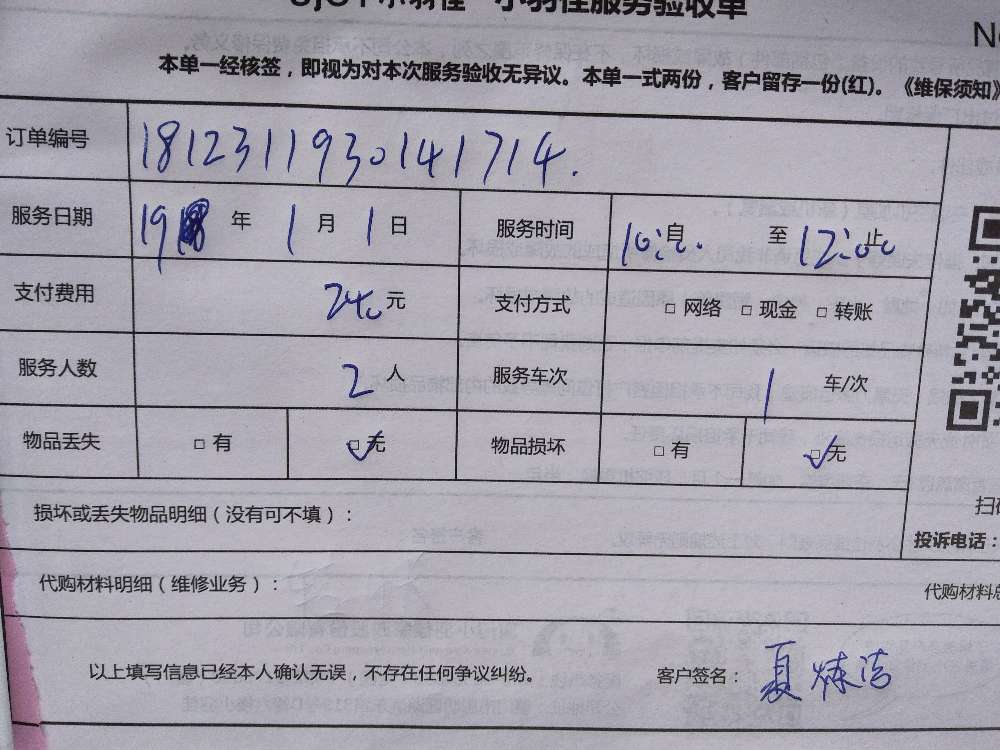 小羽佳服务验收单
No
本单一经核签，即视为对本次服务验收无异议。本单一式两份，客户留存一份(红)。《维保须知》
订单编号 1812311930141714.
服务日期 19 年 1 月 1 日 服务时间 10:00 自 至 12:00 止
支付费用 240 元 支付方式 □ 网络 □ 现金 □ 转账
服务人数 2 人 服务车次 1 车/次
物品丢失 □ 有 □ 无 物品损坏 □ 有 □ 无
损坏或丢失物品明细（没有可不填）：
扫
投诉电话：
代购材料明细（维修业务）： 代购材料
以上填写信息已经本人确认无误，不存在任何争议纠纷。 客户签名： 夏炼洁